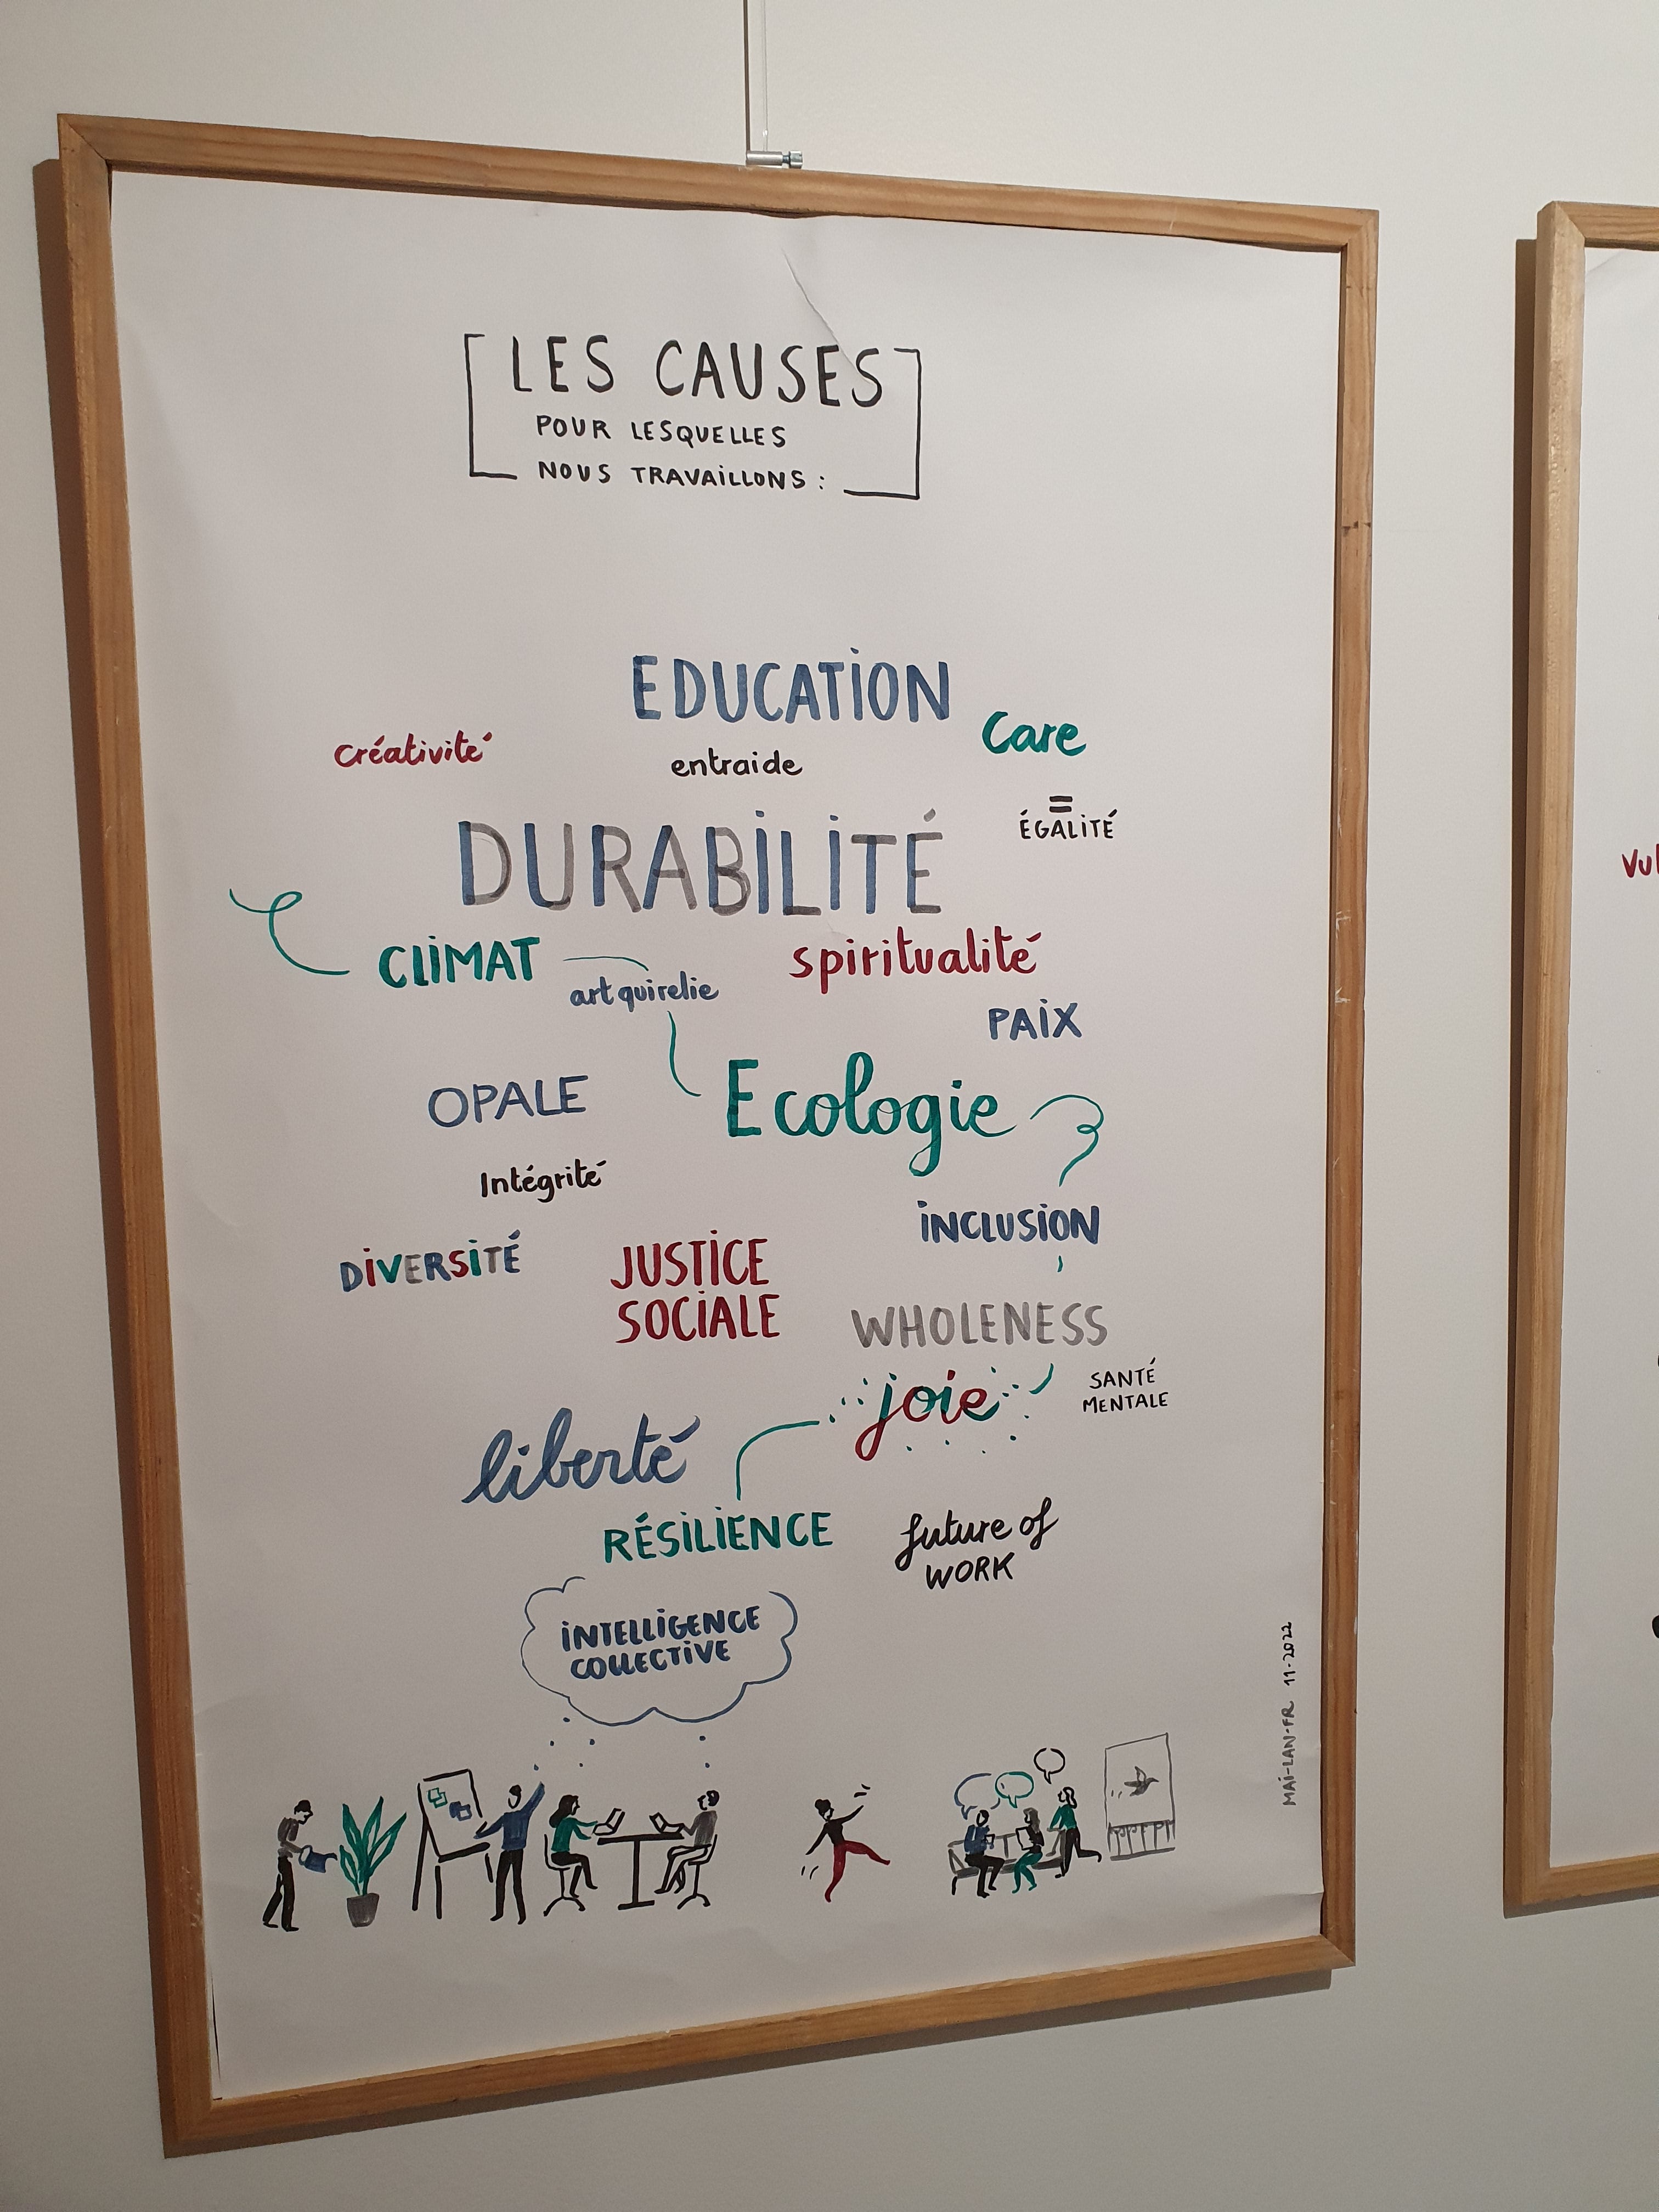 LES CAUSES
POUR LESQUELLES
NOUS TRAVAILLONS :
EDUCATION
Care
créativité
entraide
=
ÉGALITÉ
DURABILITÉ
CLIMAT
spiritualité
art qui relie
PAIX
OPALE
Ecologie
Intégrité
INCLUSION
DIVERSITÉ
JUSTICE
SOCIALE
WHOLENESS
joie
SANTÉ
MENTALE
liberté
RÉSILIENCE
future of
WORK
INTELLIGENCE
COLLECTIVE
MAI-LAN-FR 11-2022